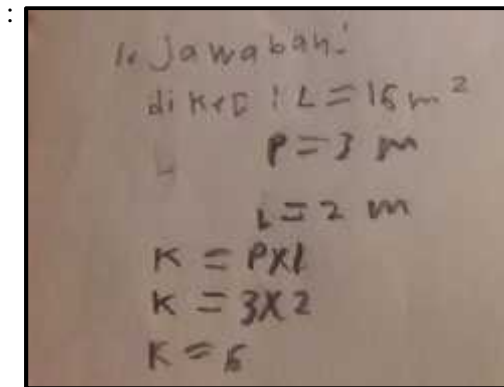 :
1. Jawaban:
diket : L = 16 m²
P = 3 m
L = 2 m
K = P x l
K = 3 x 2
K = 6